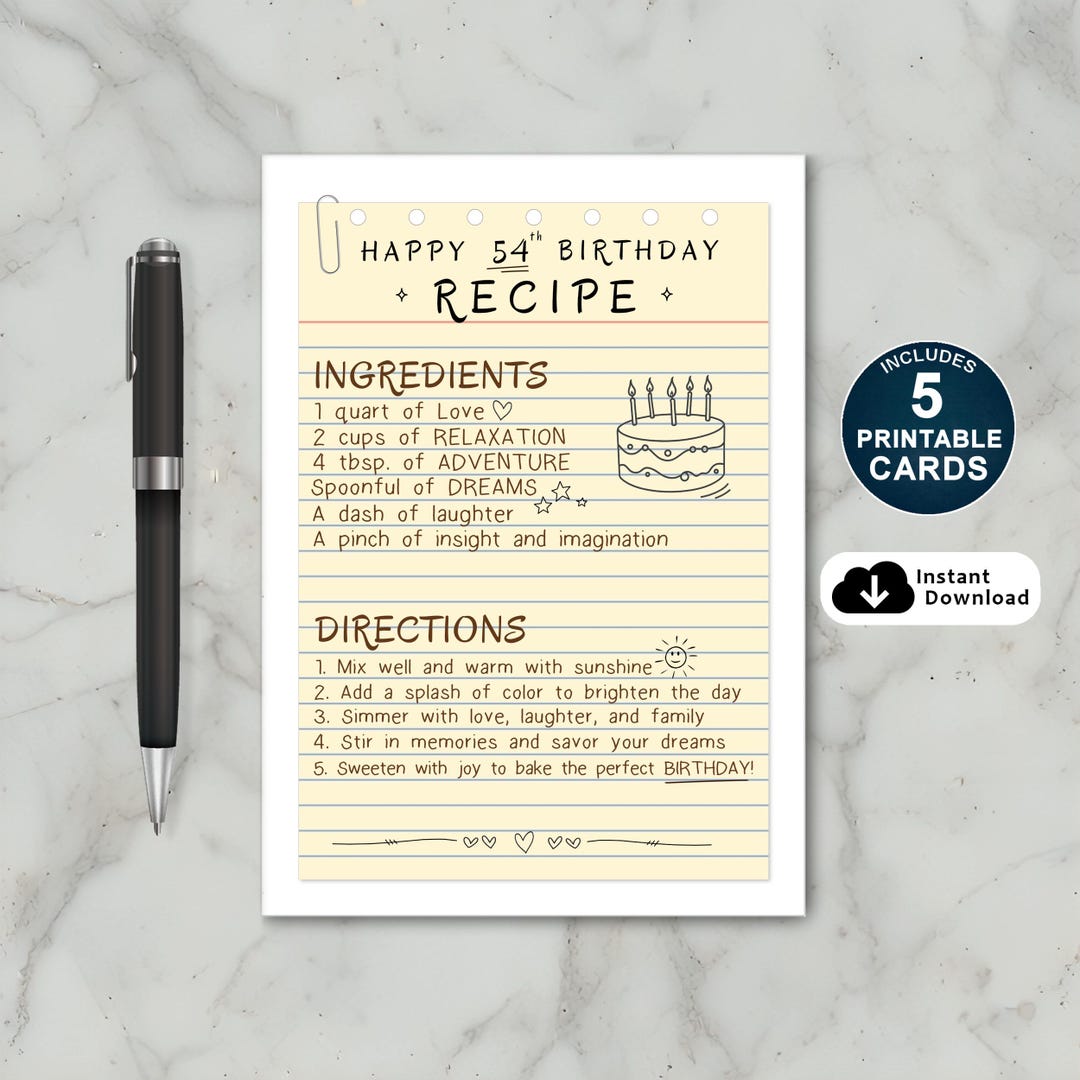 HAPPY 54th BIRTHDAY
RECIPE
INGREDIENTS
1 quart of Love
2 cups of RELAXATION
4 tbsp. of ADVENTURE
Spoonful of DREAMS
A dash of laughter
A pinch of insight and imagination
DIRECTIONS
1. Mix well and warm with sunshine
2. Add a splash of color to brighten the day
3. Simmer with love, laughter, and family
4. Stir in memories and savor your dreams
5. Sweeten with joy to bake the perfect BIRTHDAY!
INCLUDES
5
PRINTABLE
CARDS
Instant
Download